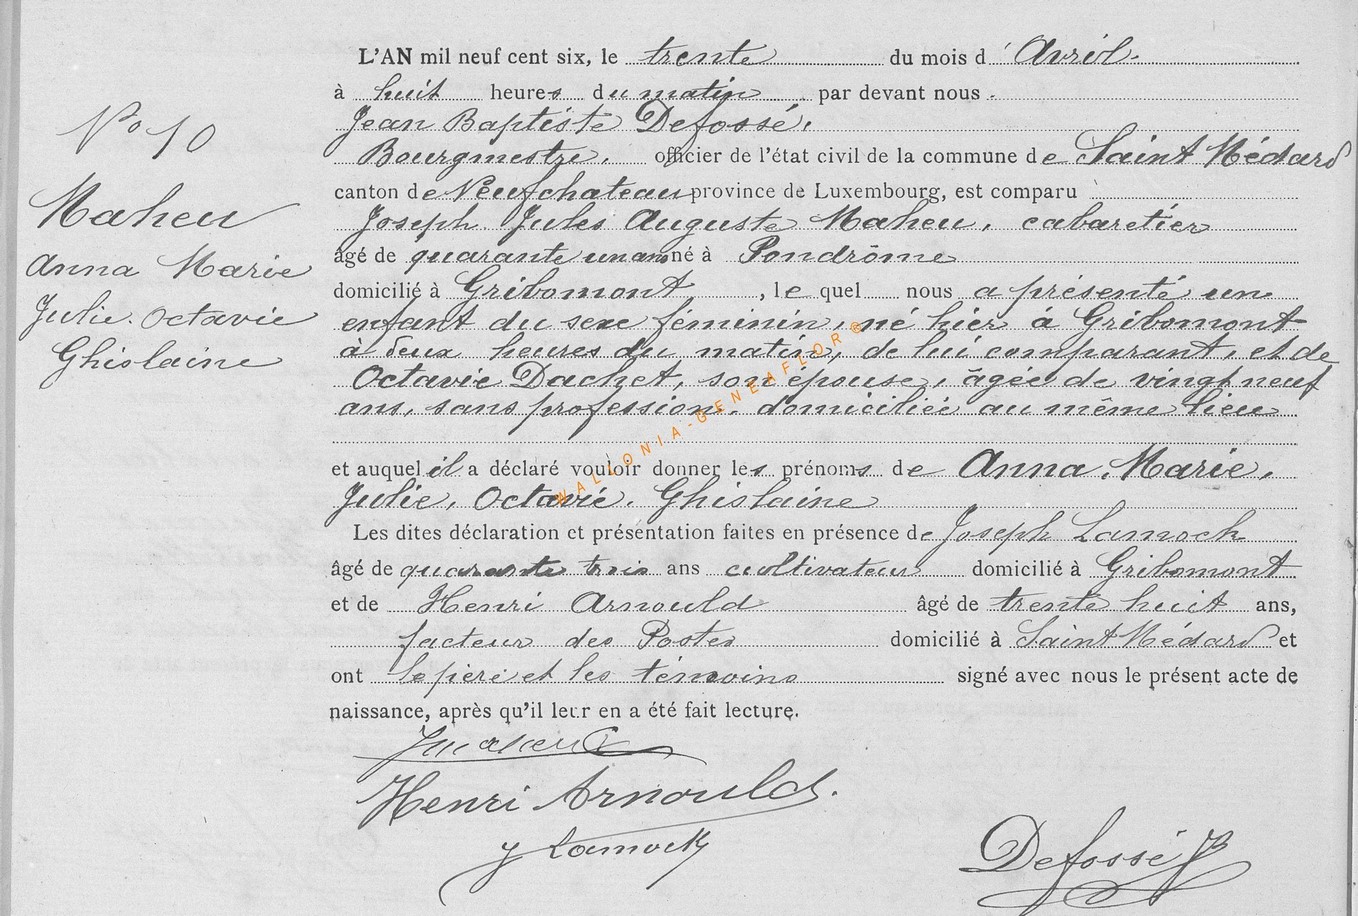 N° 10
Maheu
Anna Marie
Julie. Octavie
Ghislaine
L'AN mil neuf cent six, le trente du mois d'Avril.
à huit heures du matin par devant nous.
Jean Baptiste Defossé,
Bourgmestre, officier de l'état civil de la commune de Saint Médard
canton de Neufchateau province de Luxembourg, est comparu
Joseph Jules Auguste Maheu, cabaretier
âgé de quarante un ans né à Pondrôme
domicilié à Gribomont, le quel nous a présenté une
enfant du sexe féminin, né hier à Gribomont
à deux heures du matin, de lui comparant, et de
Octavie Dachet, son épouse, âgée de vingt neuf
ans, sans profession, domiciliée au même lieu
et auquel il a déclaré vouloir donner les prénoms de Anna, Marie,
Julie, Octavie, Ghislaine
Les dites déclaration et présentation faites en présence de Joseph Lamock
âgé de quarante trois ans cultivateur domicilié à Gribomont
et de Henri Arnould âgé de trente huit ans,
facteur des Postes domicilié à Saint Médard et
ont le père et les témoins signé avec nous le présent acte de
naissance, après qu'il leur en a été fait lecture.
JMaheu
Henri Arnould.
J Lamock
Defossé JB
WALLONIA-GENEAFLOR®